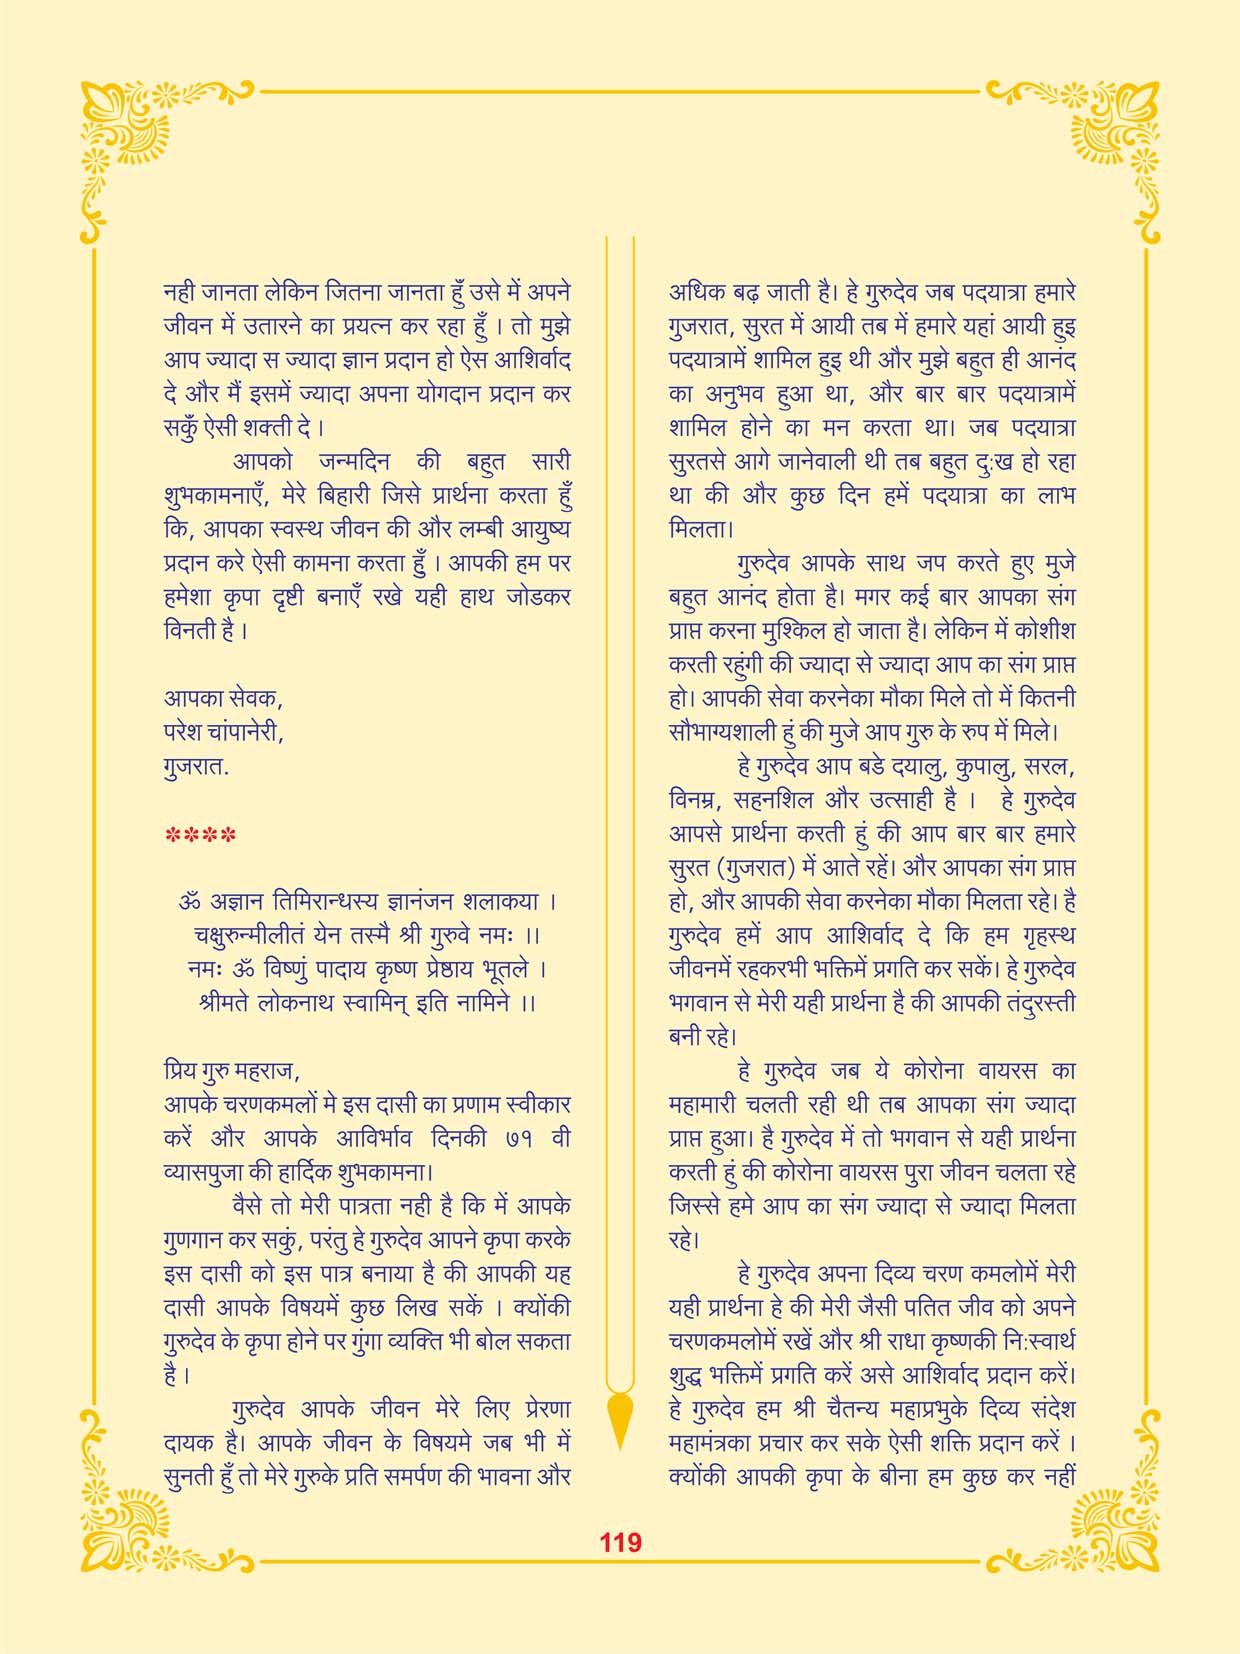 नही जानता लेकिन जितना जानता हुँ उसे में अपने
जीवन में उतारने का प्रयत्न कर रहा हूँ । तो मुझे
आप ज्यादा स ज्यादा ज्ञान प्रदान हो ऐस आशिर्वाद
दे और मैं इसमें ज्यादा अपना योगदान प्रदान कर
सकुँ ऐसी शक्ती दे ।
आपको जन्मदिन की बहुत सारी
शुभकामनाएँ, मेरे बिहारी जिसे प्रार्थना करता हूँ
कि, आपका स्वस्थ जीवन की और लम्बी आयुष्य
प्रदान करे ऐसी कामना करता हुँ । आपकी हम पर
हमेशा कृपा दृष्टी बनाएँ रखे यही हाथ जोडकर
विनती है ।
आपका सेवक,
परेश चांपानेरी,
गुजरात.
****
ॐ अज्ञान तिमिरान्धस्य ज्ञानंजन शलाकया ।
चक्षुरुन्मीलीतं येन तस्मै श्री गुरुवे नमः ।।
नमः ॐ विष्णुं पादाय कृष्ण प्रेष्ठाय भूतले ।
श्रीमते लोकनाथ स्वामिन् इति नामिने ।।
प्रिय गुरु महराज,
आपके चरणकमलों मे इस दासी का प्रणाम स्वीकार
करें और आपके आविर्भाव दिनकी ७१ वी
व्यासपुजा की हार्दिक शुभकामना।
वैसे तो मेरी पात्रता नही है कि में आपके
गुणगान कर सकुं, परंतु हे गुरुदेव आपने कृपा करके
इस दासी को इस पात्र बनाया है की आपकी यह
दासी आपके विषयमें कुछ लिख सकें । क्योंकी
गुरुदेव के कृपा होने पर गुंगा व्यक्ति भी बोल सकता
है ।
गुरुदेव आपके जीवन मेरे लिए प्रेरणा
दायक है। आपके जीवन के विषयमे जब भी में
सुनती हुँ तो मेरे गुरुके प्रति समर्पण की भावना और
अधिक बढ़ जाती है। हे गुरुदेव जब पदयात्रा हमारे
गुजरात, सुरत में आयी तब में हमारे यहां आयी हुइ
पदयात्रामें शामिल हुइ थी और मुझे बहुत ही आनंद
का अनुभव हुआ था, और बार बार पदयात्रामें
शामिल होने का मन करता था। जब पदयात्रा
सुरतसे आगे जानेवाली थी तब बहुत दुःख हो रहा
था की और कुछ दिन हमें पदयात्रा का लाभ
मिलता।
गुरुदेव आपके साथ जप करते हुए मुजे
बहुत आनंद होता है। मगर कई बार आपका संग
प्राप्त करना मुश्किल हो जाता है। लेकिन में कोशीश
करती रहुंगी की ज्यादा से ज्यादा आप का संग प्राप्त
हो। आपकी सेवा करनेका मौका मिले तो में कितनी
सौभाग्यशाली हुं की मुजे आप गुरु के रुप में मिले।
हे गुरुदेव आप बडे दयालु, कुपालु, सरल,
विनम्र, सहनशिल और उत्साही है । हे गुरुदेव
आपसे प्रार्थना करती हुं की आप बार बार हमारे
सुरत (गुजरात) में आते रहें। और आपका संग प्राप्त
हो, और आपकी सेवा करनेका मौका मिलता रहे। है
गुरुदेव हमें आप आशिर्वाद दे कि हम गृहस्थ
जीवनमें रहकरभी भक्तिमें प्रगति कर सकें। हे गुरुदेव
भगवान से मेरी यही प्रार्थना है की आपकी तंदुरस्ती
बनी रहे।
हे गुरुदेव जब ये कोरोना वायरस का
महामारी चलती रही थी तब आपका संग ज्यादा
प्राप्त हुआ। है गुरुदेव में तो भगवान से यही प्रार्थना
करती हुं की कोरोना वायरस पुरा जीवन चलता रहे
जिस्से हमे आप का संग ज्यादा से ज्यादा मिलता
रहे।
हे गुरुदेव अपना दिव्य चरण कमलोमें मेरी
यही प्रार्थना हे की मेरी जैसी पतित जीव को अपने
चरणकमलोमें रखें और श्री राधा कृष्णकी निःस्वार्थ
शुद्ध भक्तिमें प्रगति करें असे आशिर्वाद प्रदान करें।
हे गुरुदेव हम श्री चैतन्य महाप्रभुके दिव्य संदेश
महामंत्रका प्रचार कर सके ऐसी शक्ति प्रदान करें ।
क्योंकी आपकी कृपा के बीना हम कुछ कर नहीं
119